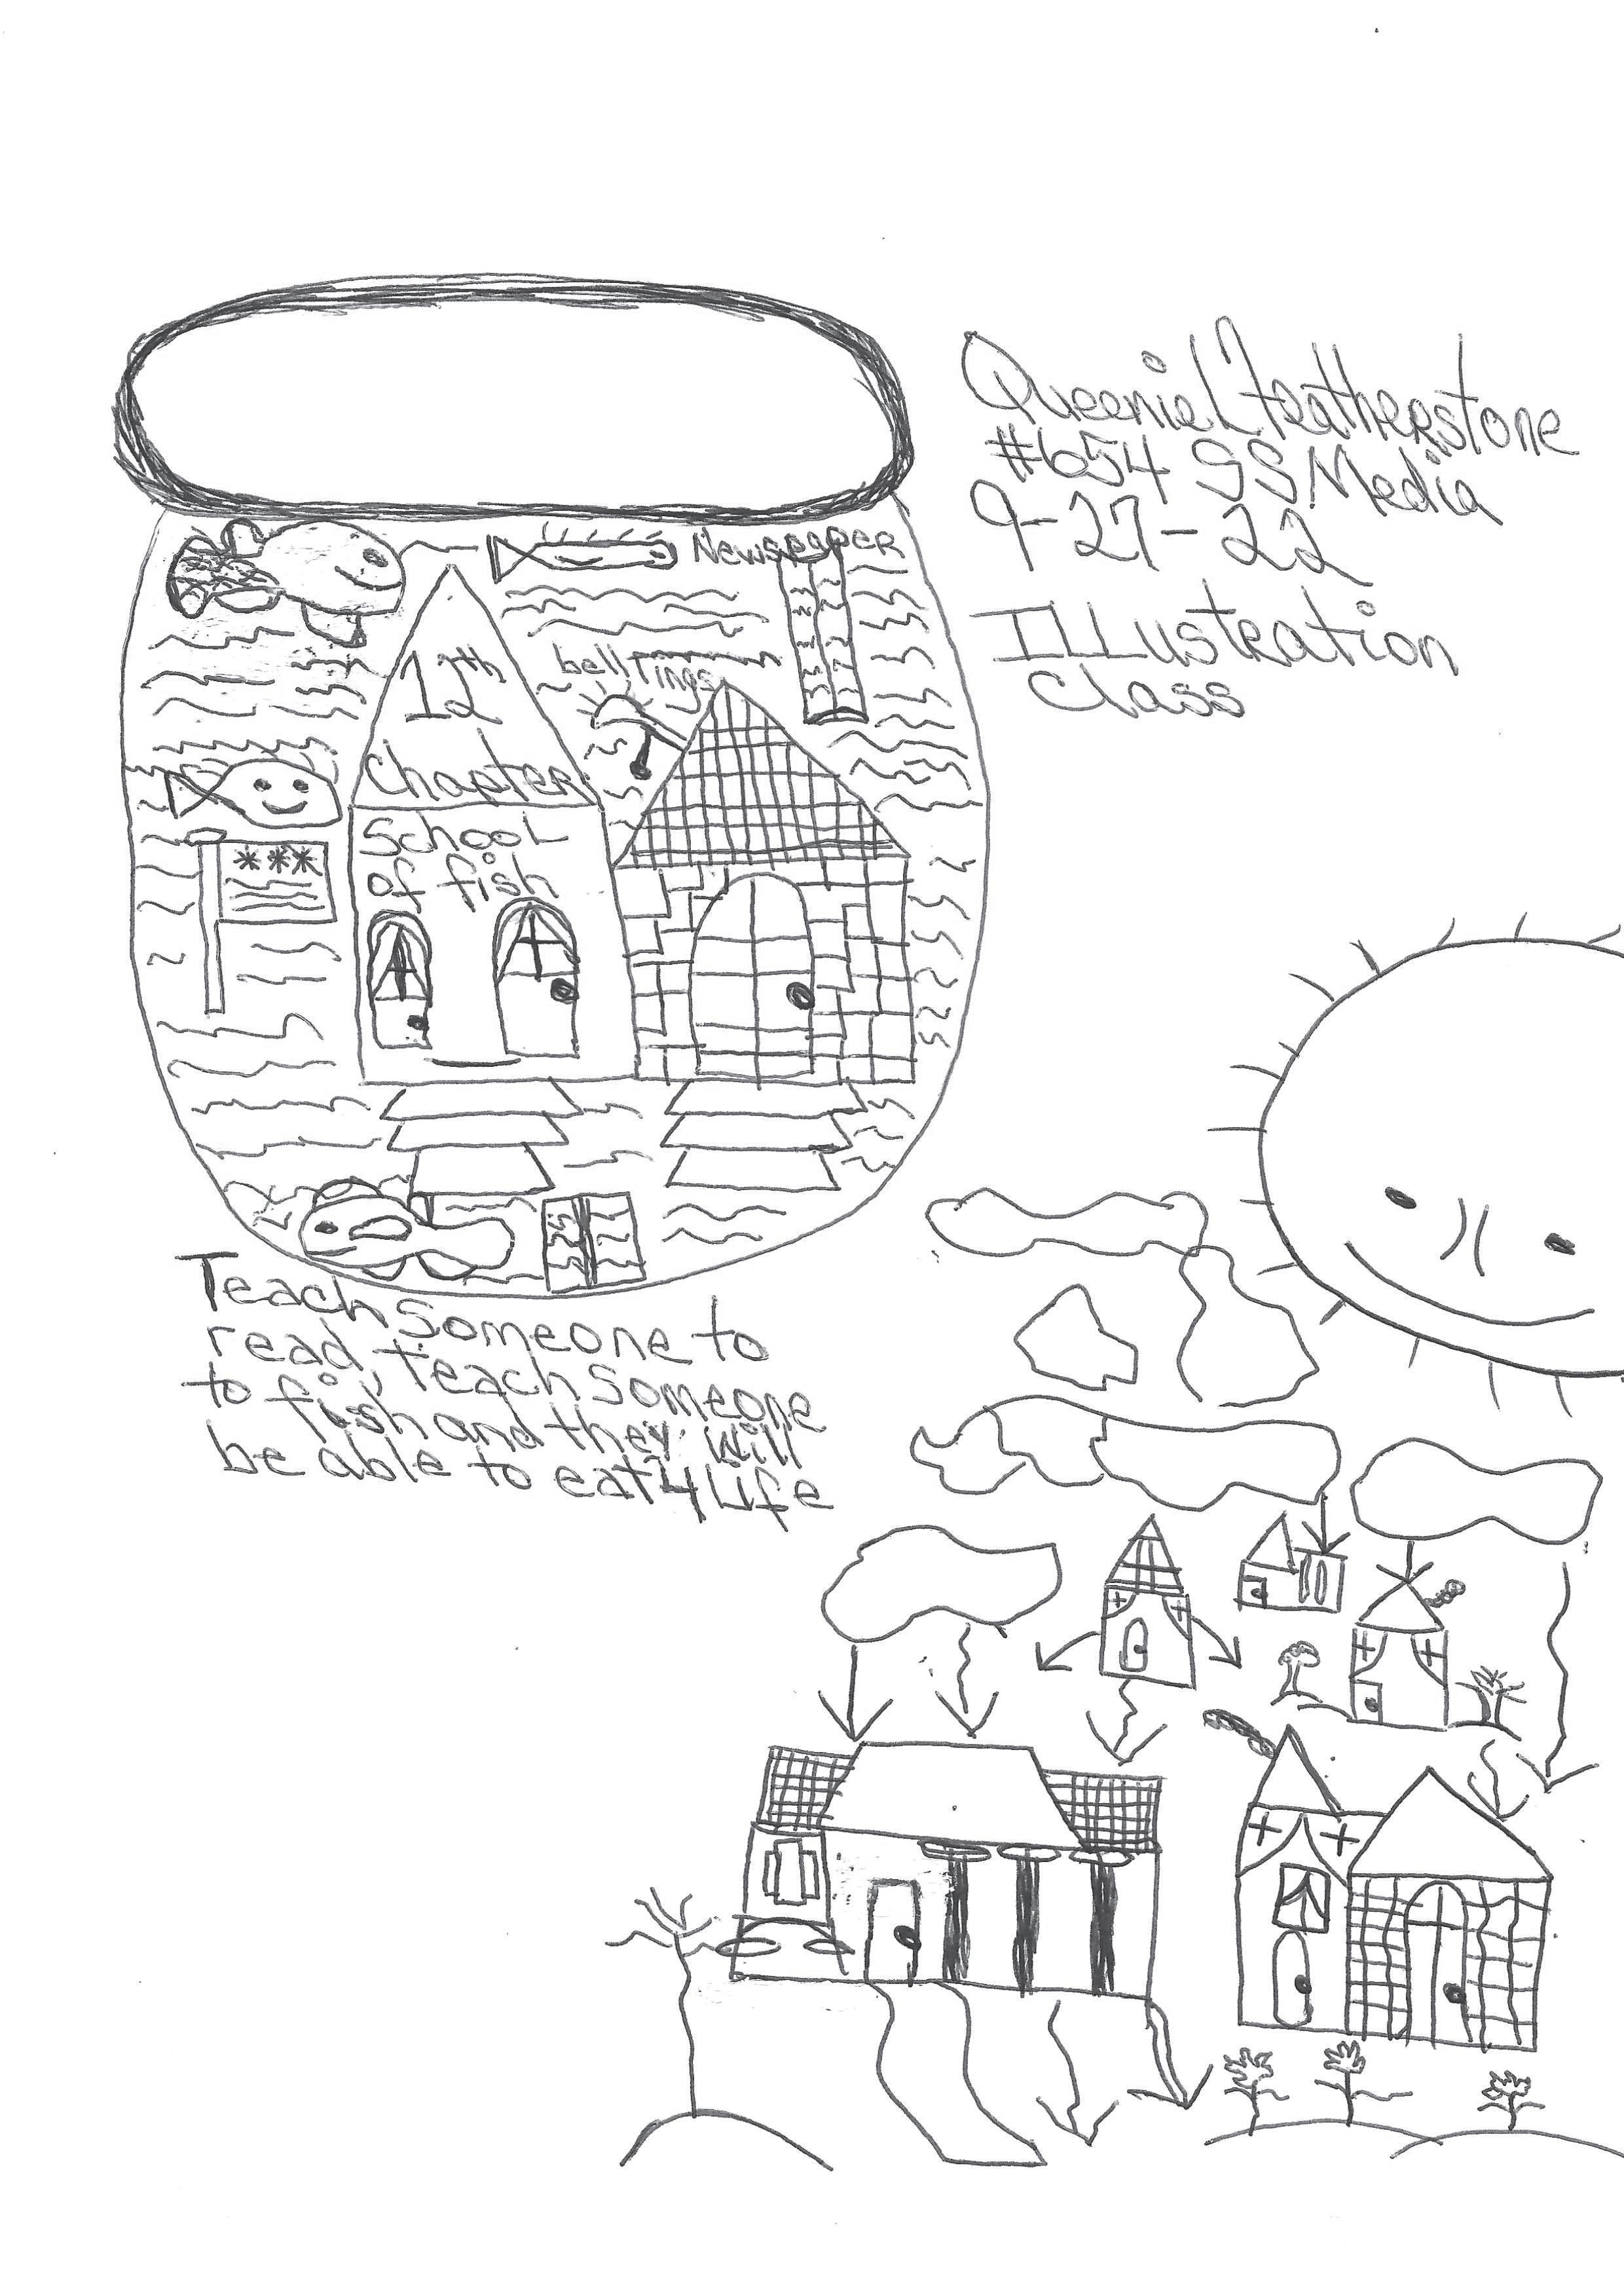 Queenie L Featherstone
#654 SS Media
9-27-22
ILLustration
Class
Newspaper
bell rings
12th
Chapter
School
of fish
Teach Someone to
read, teach Someone
to fish and they will
be able to eat 4 Life